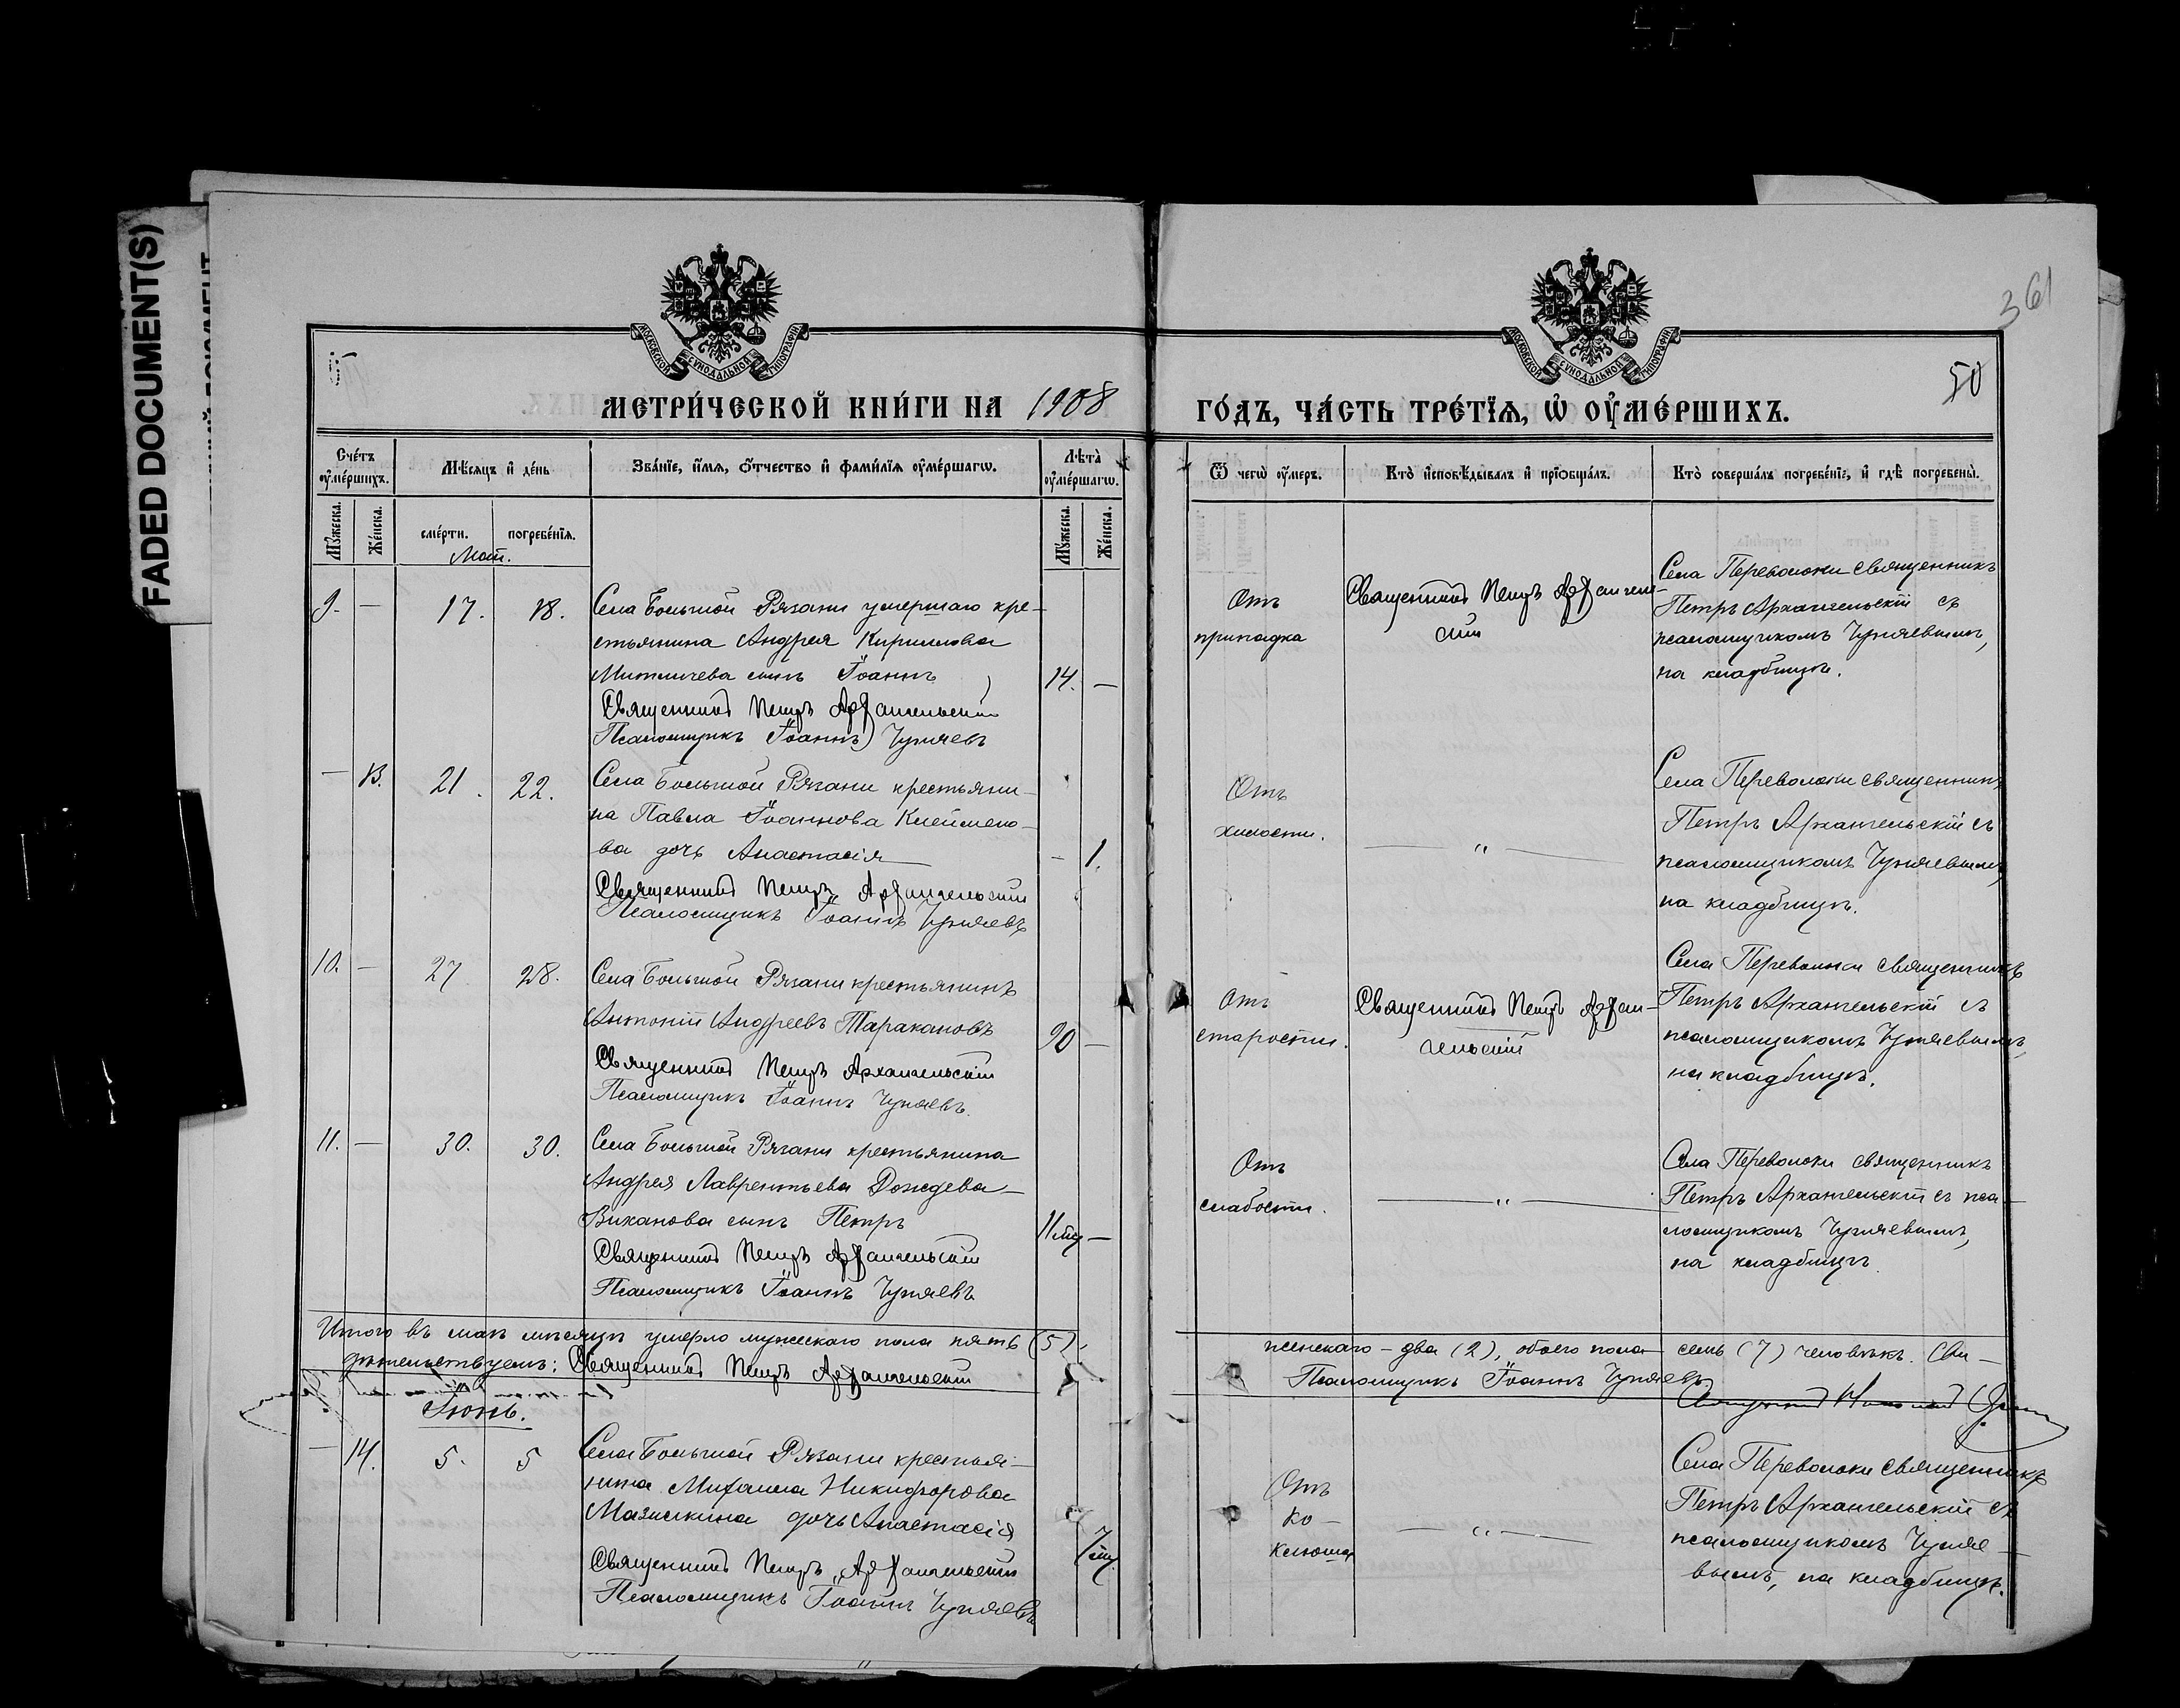 FADED DOCUMENT(S)
361
50
МОСКОВСКОЙ СѴНОДАЛЬНОЙ ТИПОГРАФІИ
МОСКОВСКОЙ СѴНОДАЛЬНОЙ ТИПОГРАФІИ
МЕТРИ́ЧЕСКОЙ КНИ́ГИ НА 1908
ГО́ДЪ, ЧА́СТЬ ТРЕ́ТЇѦ, Ѡ҆ ОУ҆МЕ́РШИХЪ.
Сче́тъ оу҆ме́ршихъ.
Мѣ́сѧцъ и҆ де́нь
Зва́нїе, и҆́мѧ, ѻ҆́тчество и҆ фами́лїѧ оу҆ме́ршагѡ.
Лѣ́та̀ оу҆ме́ршагѡ.
Ѿ чегѡ̀ оу҆́меръ.
Кто̀ и҆сповѣ́дывалъ и҆ прїѻбща́лъ.
Кто̀ соверша́лъ погребе́нїе, и҆ гдѣ̀ погребены̀.
Мꙋ́жеска.
Же́нска.
сме́рти.
погребе́нїѧ.
Мꙋ́жеска.
Же́нска.
Май.
9. — 17. 18.
Села Большой Рязани умершаго кре-
стьянина Андрея Кириллова
Митличева сынъ Іоаннъ
14. —
Священникъ Петръ Архангельскій
Псаломщикъ Іоаннъ Чуняевъ
Отъ
припадка
Священникъ Петръ Архангель-
скій
Села Переволоки священникъ
Петръ Архангельскій съ
псаломщикомъ Чуняевымъ,
на кладбищѣ.
— 13. 21. 22.
Села Большой Рязани крестьяни-
на Павла Іоаннова Клеймено-
ва дочь Анастасія
— 1.
Священникъ Петръ Архангельскій
Псаломщикъ Іоаннъ Чуняевъ
Отъ
хилости.
— „ —
Села Переволоки священникъ
Петръ Архангельскій съ
псаломщикомъ Чуняевымъ,
на кладбищѣ.
10. — 27 28.
Села Большой Рязани крестьянинъ
Антоній Андреевъ Таракановъ
90 —
Священникъ Петръ Архангельскій
Псаломщикъ Іоаннъ Чуняевъ.
Отъ
старости.
Священникъ Петръ Архан-
гельскій
Села Переволоки священникъ
Петръ Архангельскій съ
псаломщикомъ Чуняевымъ,
на кладбищѣ.
11. — 30. 30.
Села Большой Рязани крестьянина
Андрея Лаврентьева Дождева-
Виканова сынъ Петръ
11 мц —
Священникъ Петръ Архангельскій
Псаломщикъ Іоаннъ Чуняевъ
Отъ
слабости.
— „ —
Села Переволоки священникъ
Петръ Архангельскій съ пса-
ломщикомъ Чуняевымъ,
на кладбищѣ
Итого въ маѣ мѣсяцѣ умерло мужескаго пола пять (5),
женскаго – два (2), обоего пола семь (7) человѣкъ. Сви-
дѣтельствуемъ: Священникъ Петръ Архангельскій
Псаломщикъ Іоаннъ Чуняевъ
Іюнь.
— 14. 5. 5
Села Большой Рязани крестья-
нина Михаила Никифорова
Мазилкина дочь Анастасія
7 мц.
Священникъ Петръ Архангельскій
Псаломщикъ Іоаннъ Чуняевъ
Отъ
ко-
клюша
— „ —
Села Переволоки священникъ
Петръ Архангельскій съ
псаломщикомъ Чуняе-
вымъ, на кладбищѣ.